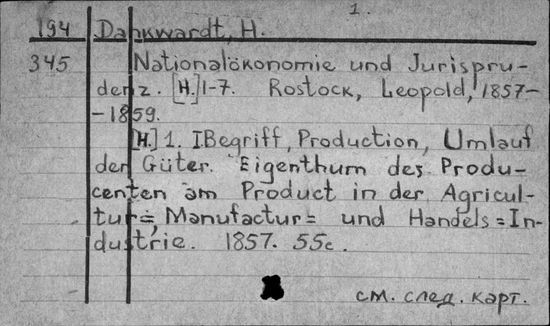 1.
194 Dankwardt, H.
345 Nationalökonomie und Jurispru-
denz. [H.] 1-7. Rostock, Leopold, 1857-
-1859.
[H.] 1. I. Begriff, Production, Umlauf
der Güter. Eigenthum des Produ-
centen am Product in der Agricul-
tur=, Manufactur= und Handels=In-
dustrie. 1857. 55c.
см. след. карт.